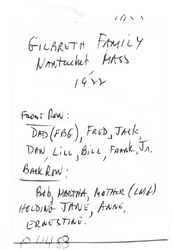 GILBRETH FAMILY
NANTUCKET MASS
1922
FRONT ROW:
DAD (FBG), FRED, JACK,
DAN, LILL, BILL, FRANK, JR.
BACK ROW:
BOB, MARTHA, MOTHER (LMG)
HOLDING JANE, ANNE,
ERNESTINE.